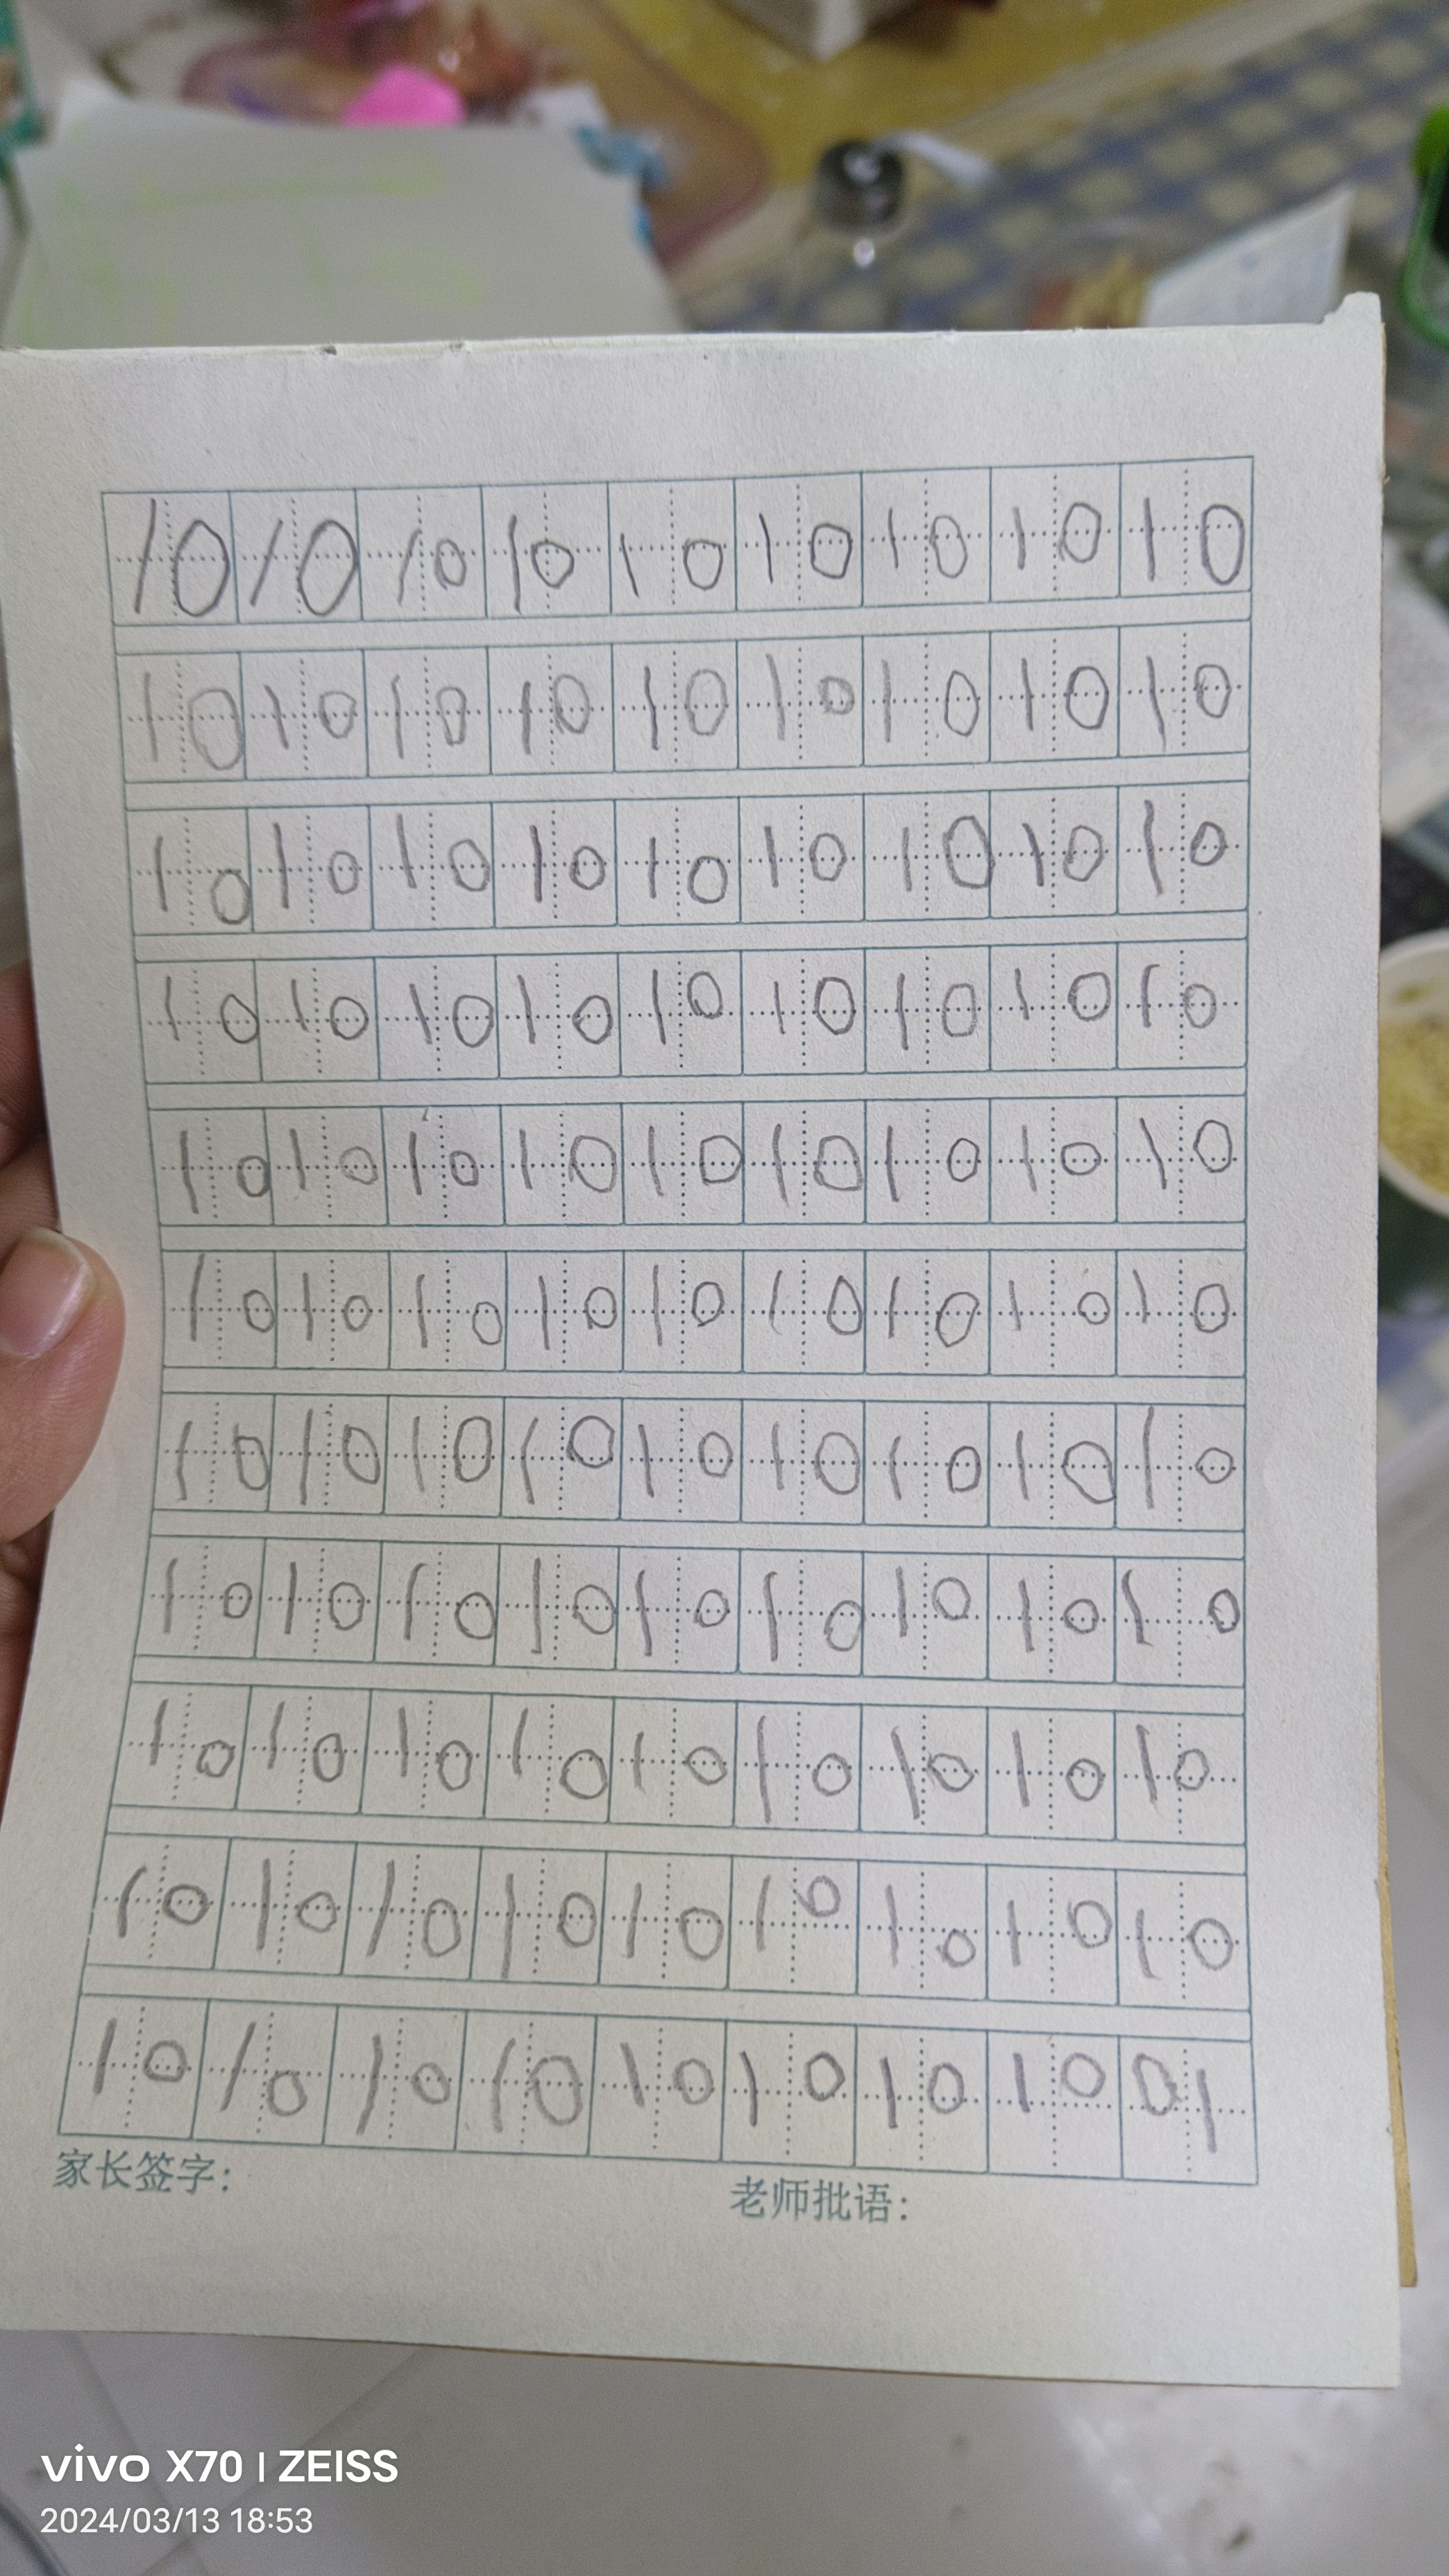 10 10 10 10 10 10 10 10 10
10 10 10 10 10 10 10 10 10
10 10 10 10 10 10 10 10 10
10 10 10 10 10 10 10 10 10
10 10 10 10 10 10 10 10 10
10 10 10 10 10 10 10 10 10
10 10 10 10 10 10 10 10 10
10 10 10 10 10 10 10 10 10
10 10 10 10 10 10 10 10 10
10 10 10 10 10 10 10 10 10
10 10 10 10 10 10 10 10 01
家长签字： 老师批语：
vivo X70 | ZEISS
2024/03/13 18:53